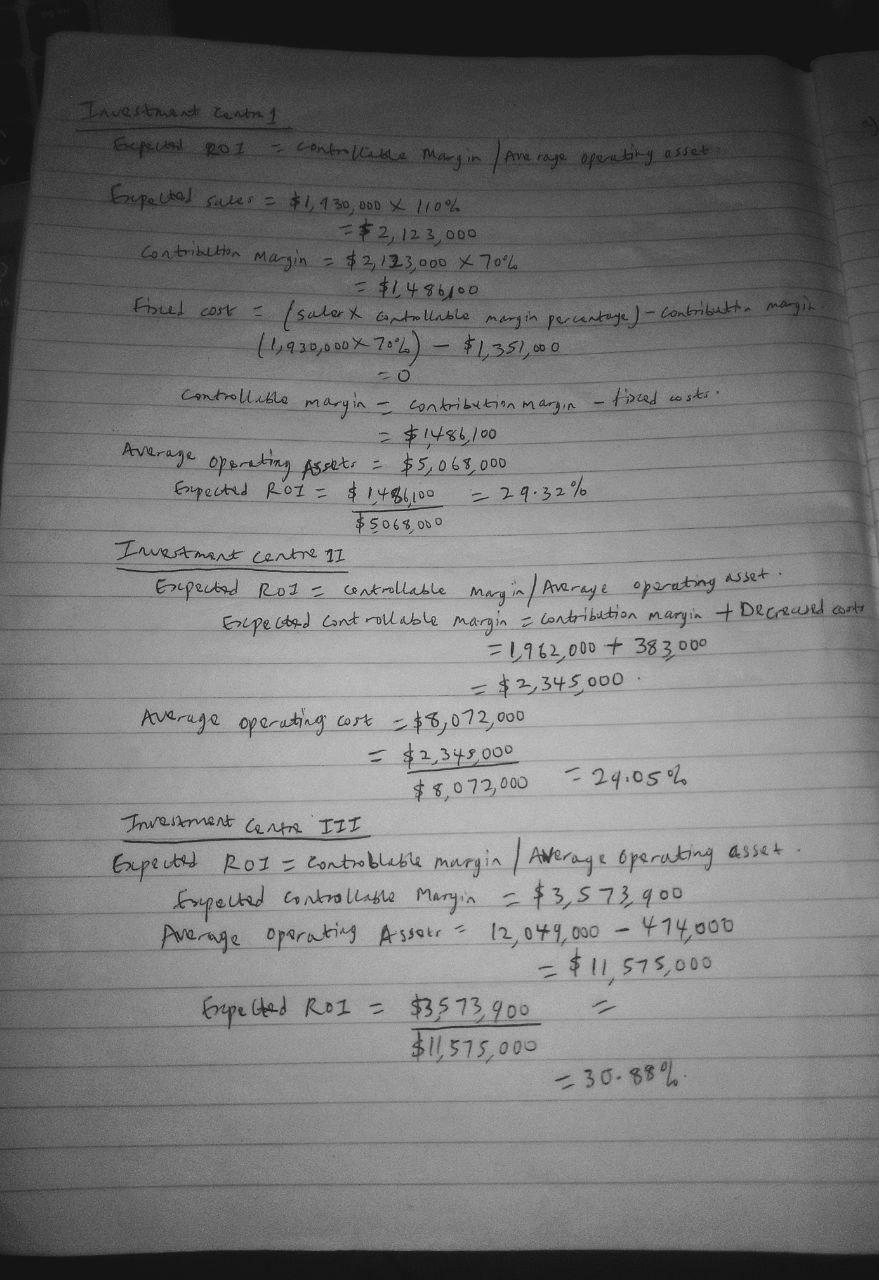 Investment Centre 1
Expected ROI = Controllable Margin / Average operating asset
Expected sales = $1,930,000 X 110%
= $2,123,000
Contribution Margin = $2,123,000 X 70%
= $1,486,100
Fixed cost = (sales X controllable margin percentage) - contribution margin
(1,930,000 X 70%) - $1,351,000
= 0
Controllable margin = contribution margin - fixed costs.
= $1486,100
Average operating Assets = $5,068,000
Expected ROI = $1,486,100 = 29.32%
$5068,000
Investment centre II
Expected ROI = controllable margin / Average operating asset.
Expected controllable margin = contribution margin + Decreased costs
= 1,962,000 + 383,000
= $2,345,000.
Average operating cost = $8,072,000
= $2,345,000
$8,072,000 = 29.05%
Investment Centre III
Expected ROI = Controblable margin / Average operating asset.
Expected controllable Margin = $3,573,900
Average operating Assets = 12,049,000 - 474,000
= $11,575,000
Expected ROI = $3,573,900 =
$11,575,000
= 30.88%.